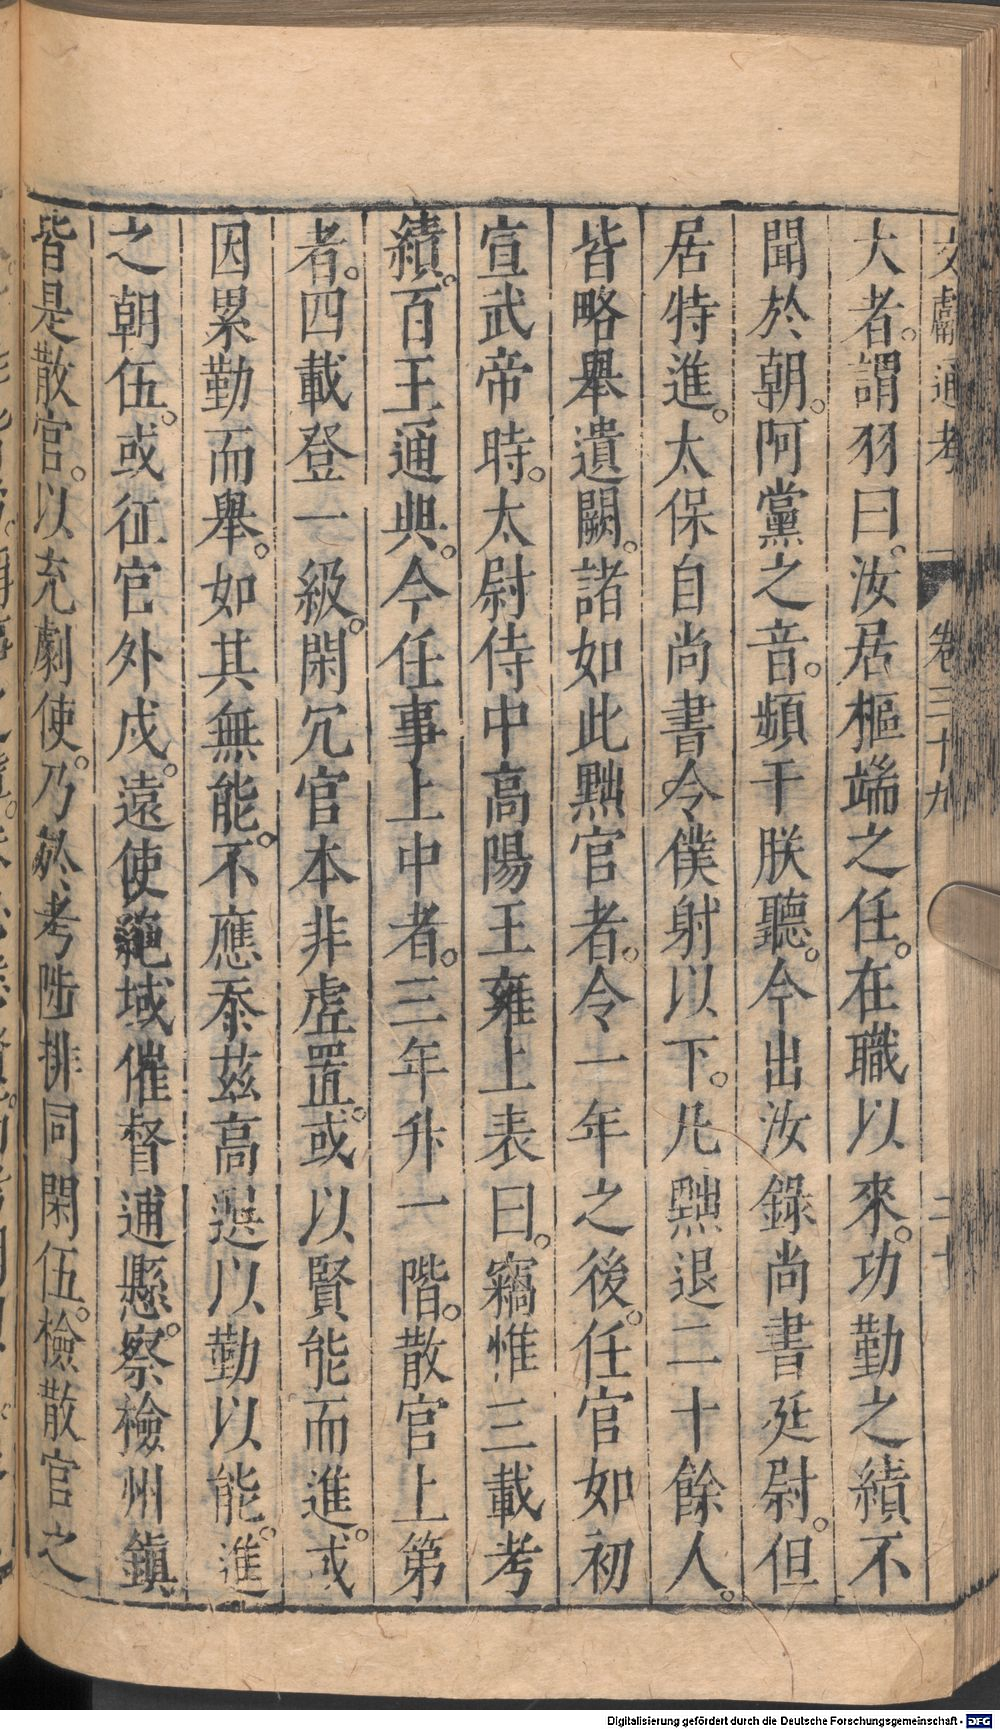 文獻通考 卷三十九 二十
大者。謂羽曰。汝居樞端之任。在職以來。功勤之績不
聞於朝。阿黨之音。頻干朕聽。今出汝錄尚書廷尉。但
居特進。太保自尚書令僕射以下。凡黜退二十餘人。
皆略舉遺闕。諸如此黜官者。令一年之後。任官如初
宣武帝時。太尉侍中高陽王雍上表曰。竊惟三載考
績。百王通典。今任事上中者。三年升一階。散官上第
者。四載登一級。閑冗官本非虛置。或以賢能而進。或
因累勤而舉。如其無能。不應忝茲高選以勤以能。進
之朝伍。或征官外戍。遠使絕域催督逋懸。察檢州鎮
皆是散官。以充劇使。乃於考陟排同閑伍。檢散官之
Digitalisierung gefördert durch die Deutsche Forschungsgemeinschaft - DFG